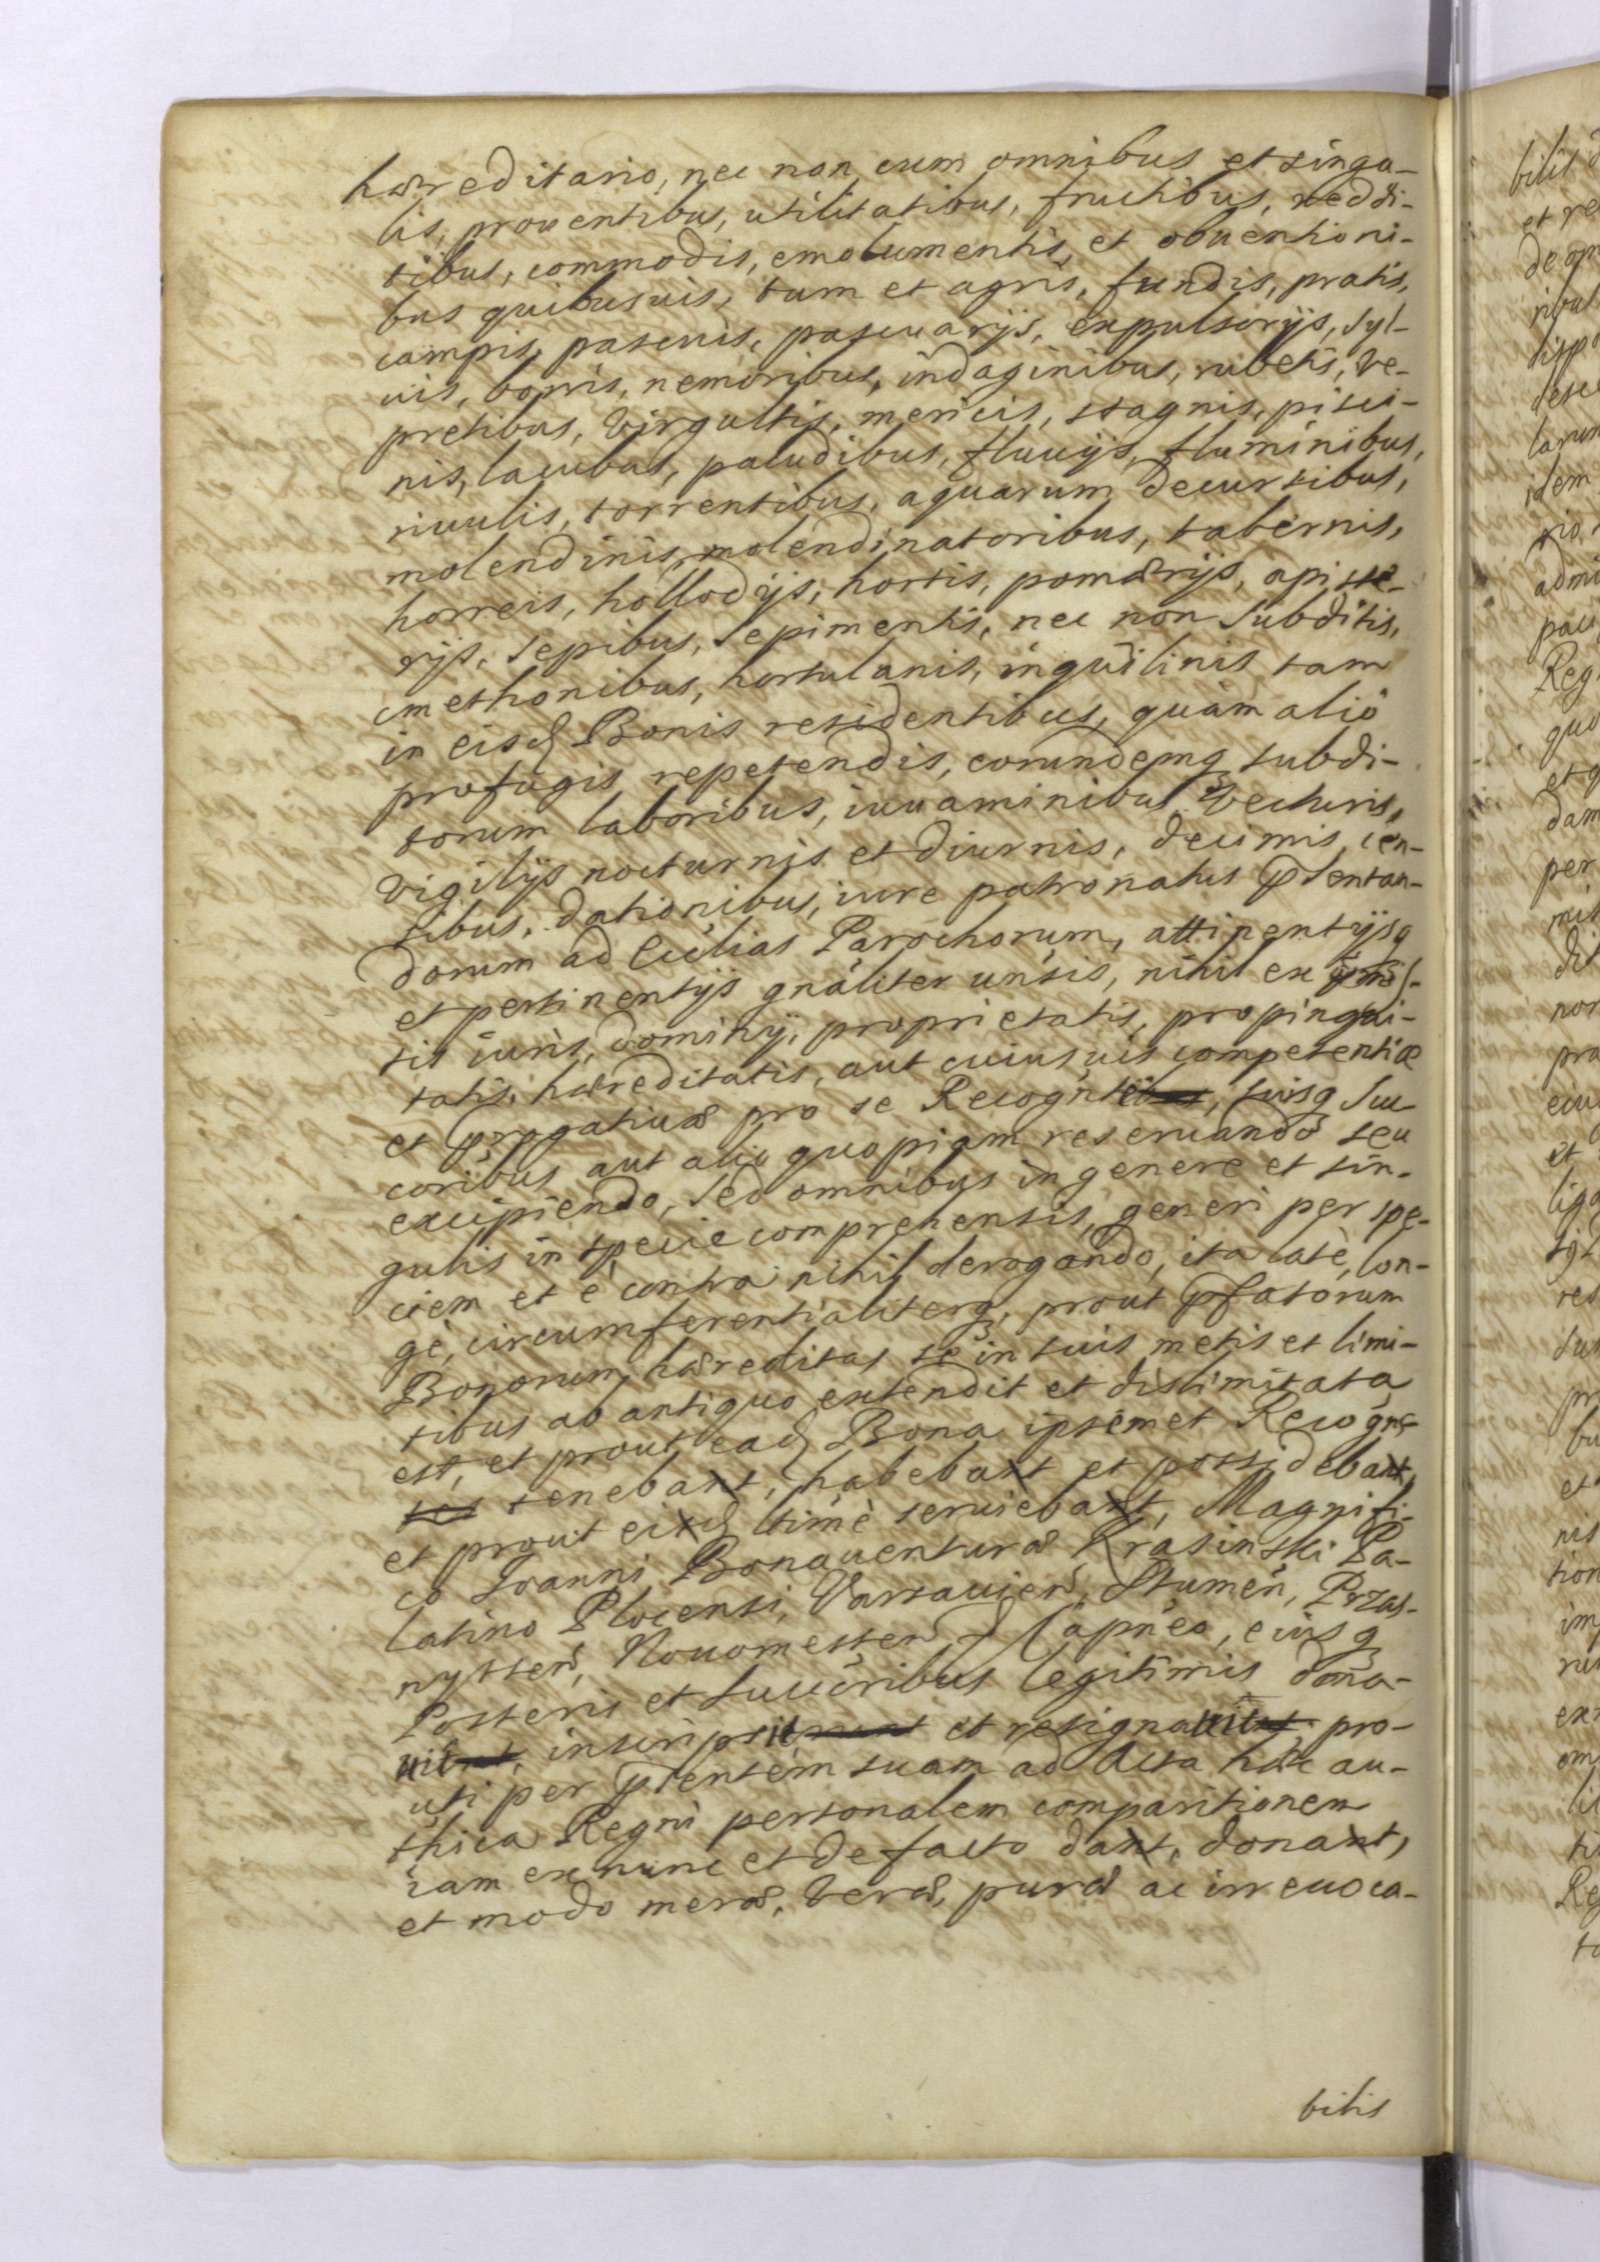 hæreditario, nec non cum omnibus et singu-
lis, prouentibus, utilitatibus, fructibus, reddi-
tibus, commodis, emolumentis, et obuentioni-
bus quibusuis, tum et agris, fundis, pratis,
campis, pascuis, pascuarijs, expulsorijs, syl-
uis, borris, nemoribus, indaginibus, rubetis, ve-
pretibus, virgultis, mericis, stagnis, pisci-
nis, lacubus, paludibus, fluuijs, fluminibus,
riuulis, torrentibus, aquarum decursibus,
molendinis, molendinatoribus, tabernis,
horreis, hollodijs, hortis, pomærijs, apiste-
rijs, sepibus, sepimentis, nec non subditis,
cmethonibus, hortulanis, inquilinis tam
in eisd Bonis residentibus, quàm aliò
profugis repetendis, eorundemq subdi-
torum laboribus, iuuaminibus, vecturis,
vigilijs nocturnis et diurnis, decimis, cen-
sibus, dationibus, iure patronatus p̄sentan-
dorum ad Ecclias Parochorum, attinentijsq
et pertinentijs gnāliter unīsis, nihil ex
tis iuris, dominij, proprietatis, propinqui-
tatis, hæreditatis, aut cuiusuis competentiæ
et p̄rogatiuæ pro se Recognte, suisq suc-
coribus aut alio quopiam reseruando seu
excipiendo, sed omnibus in genere et sin-
gulis in specie comprehensis, generi per spe-
ciem et è contra nihil derogando, ita latè, lon-
gè, circumferentialiterq, prout p̄fatorum
Bonorum hæreditas se in suis metis et limi-
tibus ab antiquo extendit et dislimitata
est, et prout ead Bona ipsemet Recogn-
tes tenebat, habebat et possidebat,
et prout eid ltimè seruiebat, Magnifi-
co Joanni Bonauenturæ Krasinski Pa-
latino Plocensi, Varsauien, Stumen, Przas-
nyssen, Nouomesten Capneo, eiusq
Posteris et succoribus legitimis dona-
uit, inscripsit et resignauit, pro-
uti per p̄sentem suam ad Acta hæc au-
thica Regni personalem comparitionem
iam ex nunc et de facto dat, donat,
et modo meræ, veræ, puræ ac irreuoca-
bilis